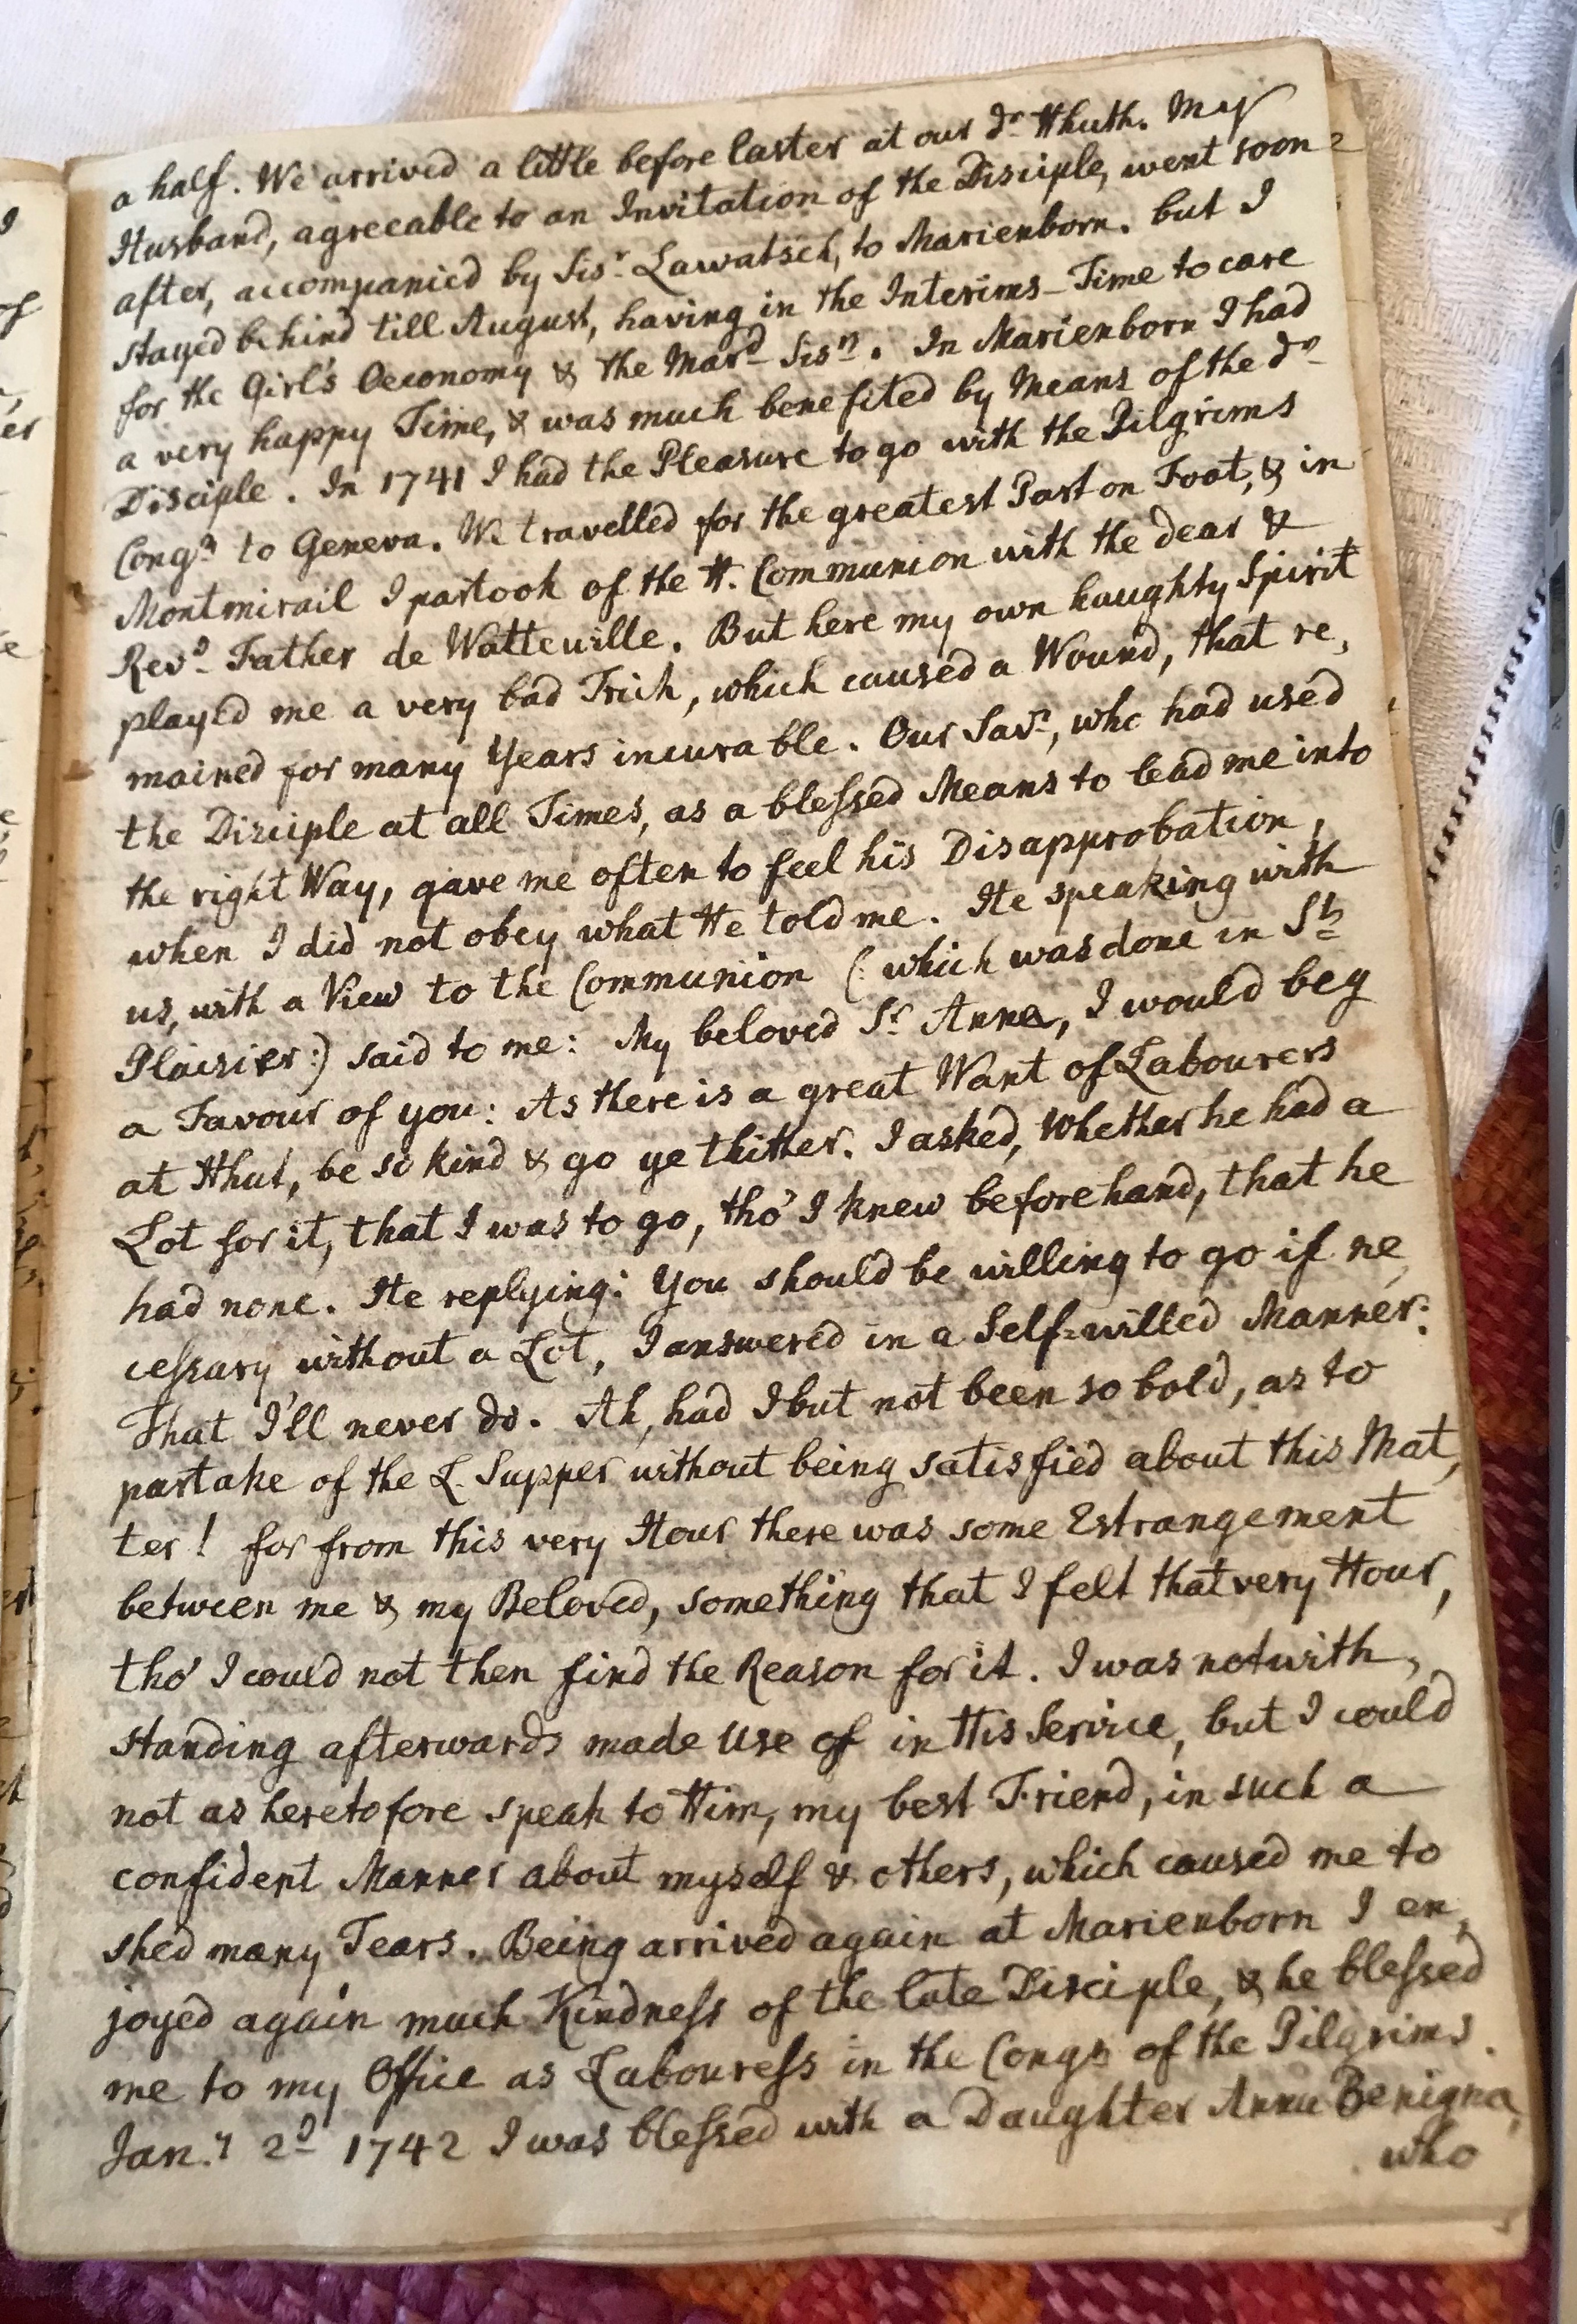 a half. We arrived a little before Easter at our dr Hhuth. My
Husband, agreeable to an Invitation of the Disciple, went soon
after, accompanied by Sisr Lawatsch, to Marienborn. but I
stayed behind till August, having in the Interims-Time to care
for the Girl's Oeconomy & the Mard Sisn. In Marienborn I had
a very happy Time, & was much benefited by Means of the dr
Disciple. In 1741 I had the Pleasure to go with the Pilgrims
Congn to Geneva. We travelled for the greatest Part on Foot, & in
Montmirail I partook of the H. Communion with the dear &
Revd Father de Watteville. But here my own haughty Spirit
played me a very bad Trick, which caused a Wound, that re,
mained for many Years incurable. Our Savr, who had used
the Disciple at all Times, as a blessed Means to lead me into
the right Way, gave me often to feel his Disapprobation,
when I did not obey what He told me. He speaking with
us, with a View to the Communion (: which was done in St
Plaisier:) said to me: My beloved Sr Anna, I would beg
a Favour of you: As there is a great Want of Labourers
at Hhut, be so kind & go ye thither. I asked, Whether he had a
Lot for it, that I was to go, tho' I knew beforehand, that he
had none. He replying: You should be willing to go if ne,
cessary without a Lot, I answered in a Self-willed Manner:
That I'll never do. Ah, had I but not been so bold, as to
partake of the L. Supper without being satisfied about this Mat,
ter! for from this very Hour there was some Estrangement
between me & my Beloved, something that I felt that very Hour,
tho' I could not then find the Reason for it. I was notwith,
standing afterwards made use of in His Service, but I could
not as heretofore speak to Him, my best Friend, in such a
confident Manner about myself & others, which caused me to
shed many Tears. Being arrived again at Marienborn I en,
joyed again much Kindness of the late Disciple, & he blessed
me to my Office as Labouress in the Congn of the Pilgrims.
Jan.y 2d 1742 I was blessed with a Daughter Anna Benigna,
who